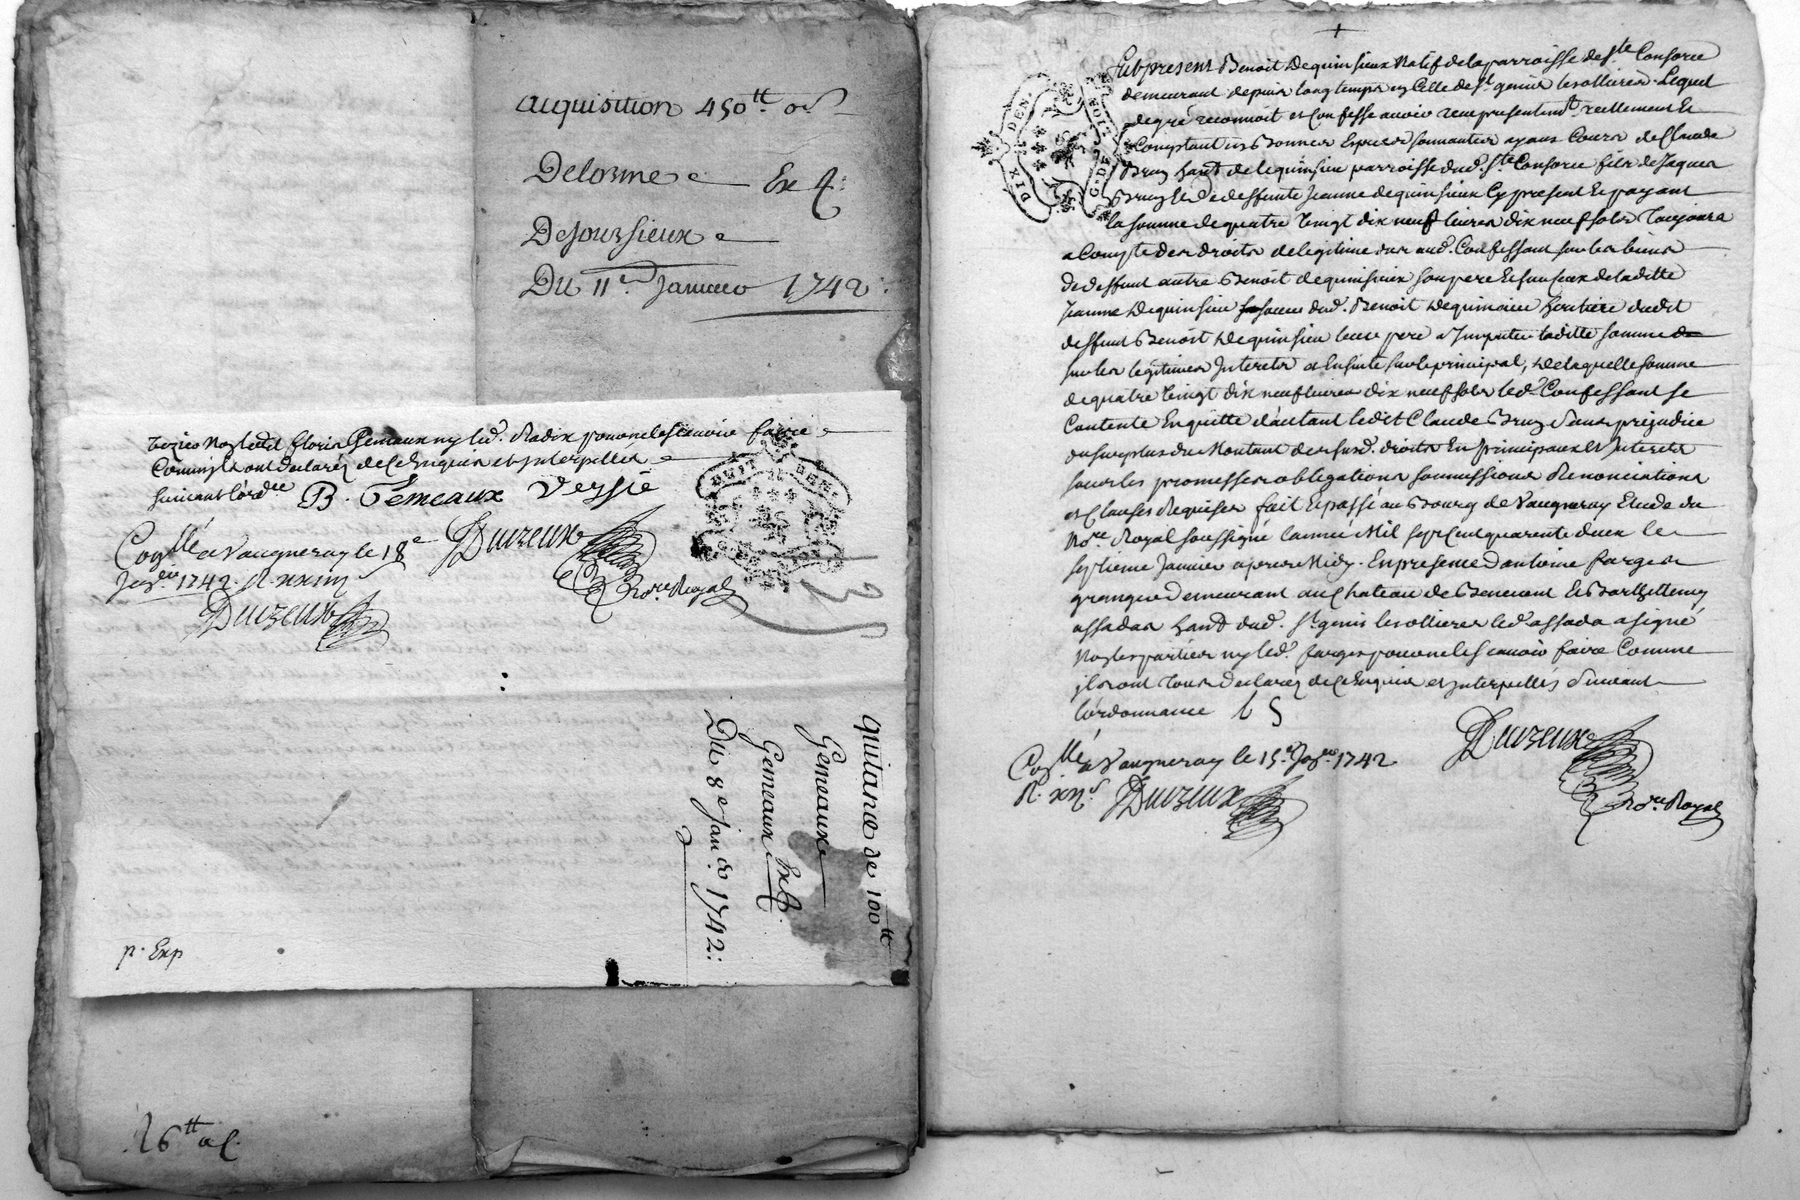 acquisition 450ᵗᵗ oˢ
Delorme Ex 4
Dejoursieux
Du 11ᵉ Janvier 1742
Gemeaux ny led. Radix pour ne le scavoir faire
Comme ils ont declarez de ce Enquis et Interpellés
suivant l'ordᶜᵉ B. Gemeaux Vessie
Coⁿˡˡᵉ a Vaugneray le 18ᵉ Duizeux
1742. R. xxiiij Noʳᵉ Royal
Duizeux
Quitance de 100ᵗᵗ
Gemeaux
Gemeaux Exp.
Du 8ᵉ Janᵉʳ 1742
p. Exp
16ᵗᵗ
DIX DEN. G. DE LION
Fut present Benoit Dequinsieux Natif de la parroisse de Sᵗᵉ Consorce
demeurant depuis longtemps en Celle de Sᵗ genis les ollieres Lequel
de gré reconnoit et Confesse avoir receu presentemᵗ reellement Et
Comptant en Bonnes Especes sonnantes ayans Cours de Claude
Bruy habᵗ de lequinsieu parroisse dud. Sᵗᵉ Consorce fils de Jaques
Bruy Et de deffunte Jeanne dequinsieux Cy present Et payant
la somme de quatre Vingt dix neuf livres dix neuf sols Toujours
a Compte des droits de legitime dus aud. Confessant sur les biens
de deffunt autre Benoit dequinsieux son pere Et de laditte
Jeanne Dequinsieu sa soeur dud. Benoit dequinsieu heritiere dudit
deffunt Benoit dequinsieu leur pere a Imputer laditte somme
sur les legitimes Interets et Ensuite sur le principal, De laquelle somme
de quatre Vingt dix neuf livres dix neuf sols led. Confessant se
Contente En quitte d'autant ledit Claude Bruy Sans prejudice
du surplus du Montant desdᵗˢ droits En principaux Et Interets
sous les promesses obligations soumissions Renonciations
et Clauses Requises fait Et passé au Bourg de Vaugneray Etude du
Noʳᵉ Royal soussigné l'année Mil sept Cent quarente deux le
septieme Janvier apres Midy. En presence d'antoine farges
granger demeurant au Chateau de Benevent Et Barthellemy
assada habᵗ dud. Sᵗ genis les ollieres led. assada a signé
Non les parties ny led. farges pour ne le scavoir faire Comme
ils ont Tous declarez de ce Enquis et Interpellés suivant
l'ordonnance
Duizeux
Coⁿˡˡᵉ a Vaugneray le 15ᵉ 1742
Duizeux Noʳᵉ Royal